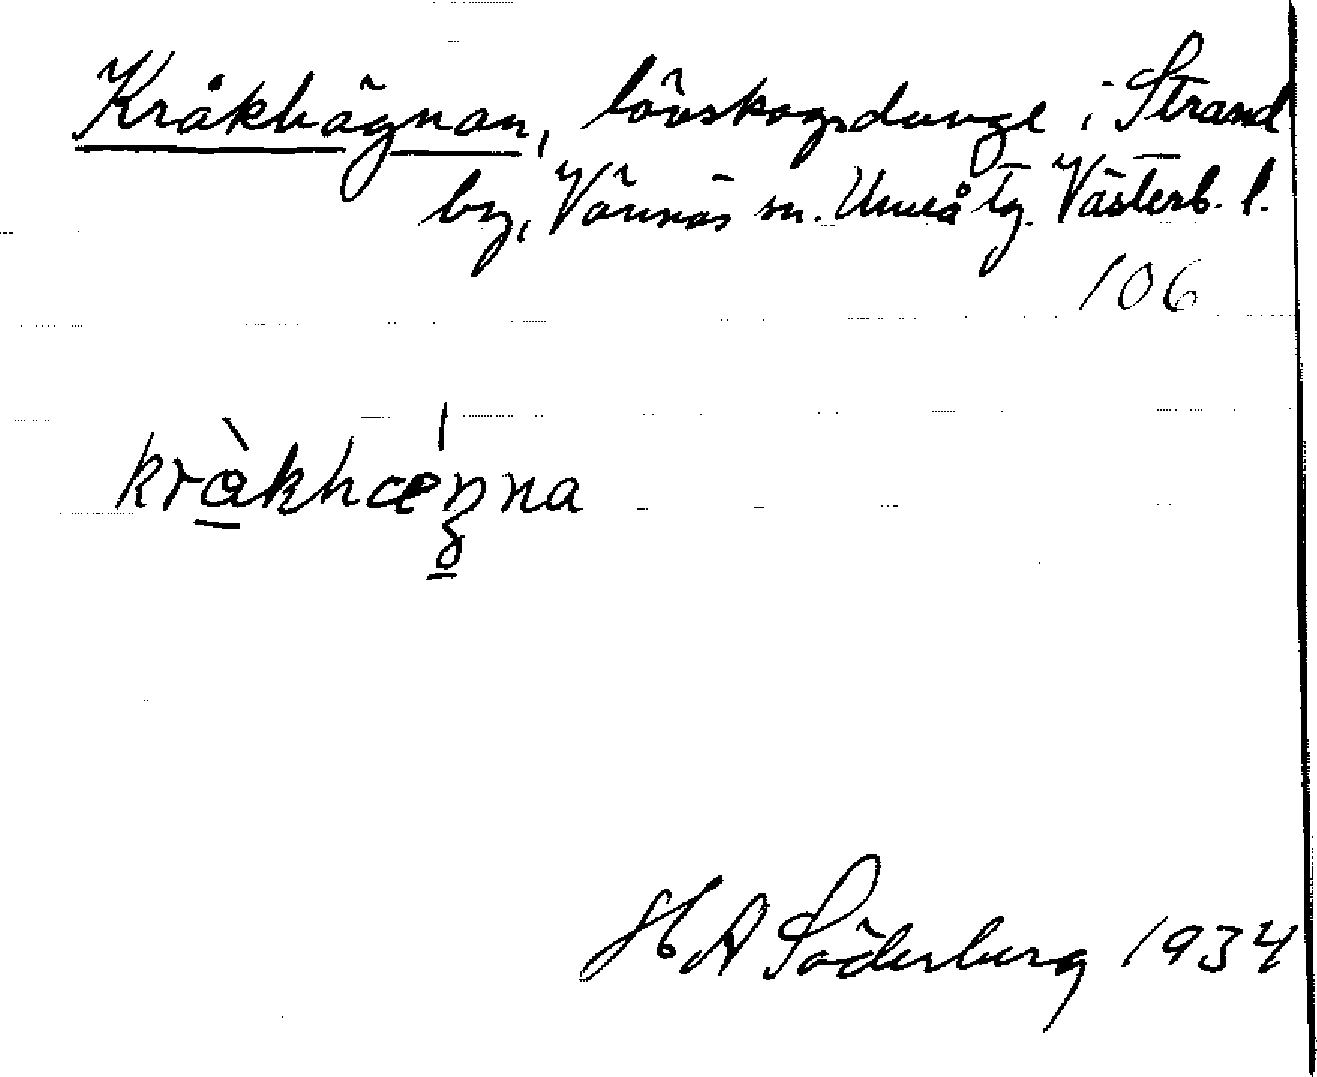 Kråkhägnan, lövskogsdunge i Strand
by, Vännäs sn. Umeå tg. Västerb. l.
106
kràkhæŋna
H A Söderberg 1934